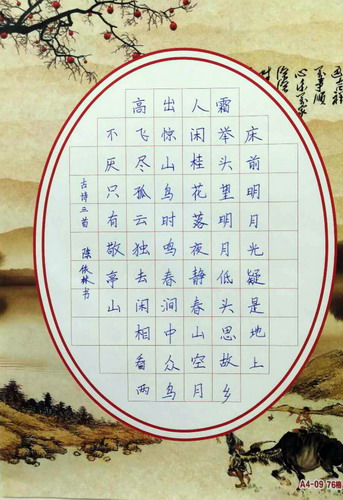 床前明月光疑是地上
霜举头望明月低头思故乡
人闲桂花落夜静春山空月
出惊山鸟时鸣春涧中众鸟
高飞尽孤云独去闲相看两
不厌只有敬亭山
古诗三首 陈依林书
A4-09 76格